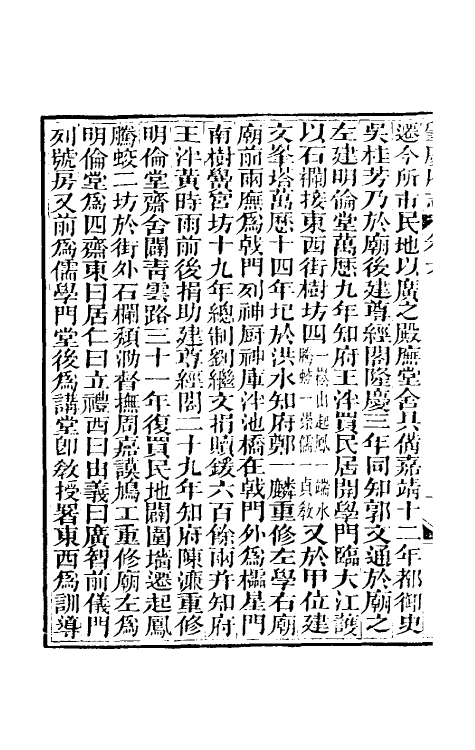 遷今所市民地以廣之殿廡堂舍具備嘉靖十二年都御史
吳桂芳乃於廟後建尊經閣隆慶三年同知郭文通於廟之
左建明倫堂萬歷九年知府王泮買民居開學門臨大江護
以石欄接東西街樹坊四一崧山起鳳一端水騰蛟一崇儒一貞敎又於甲位建
文峯塔萬歷十四年圮於洪水知府鄭一麟重修左學右廟
廟前兩廡爲戟門列神厨神庫泮池橋在戟門外爲櫺星門
南樹黌宮坊十九年總制劉繼文捐贖鍰六百餘兩幷知府
王泮黃時雨前後捐助建尊經閣二十九年知府陳濂重修
明倫堂齋舍闢靑雲路三十一年復買民地闢圍墻遷起鳳
騰蛟二坊於街外石欄頽泐督撫周嘉謨鳩工重修廟左爲
明倫堂爲四齋東曰居仁曰立禮西曰由義曰廣智前儀門
列號房又前爲儒學門堂後爲講堂卽敎授署東西爲訓導